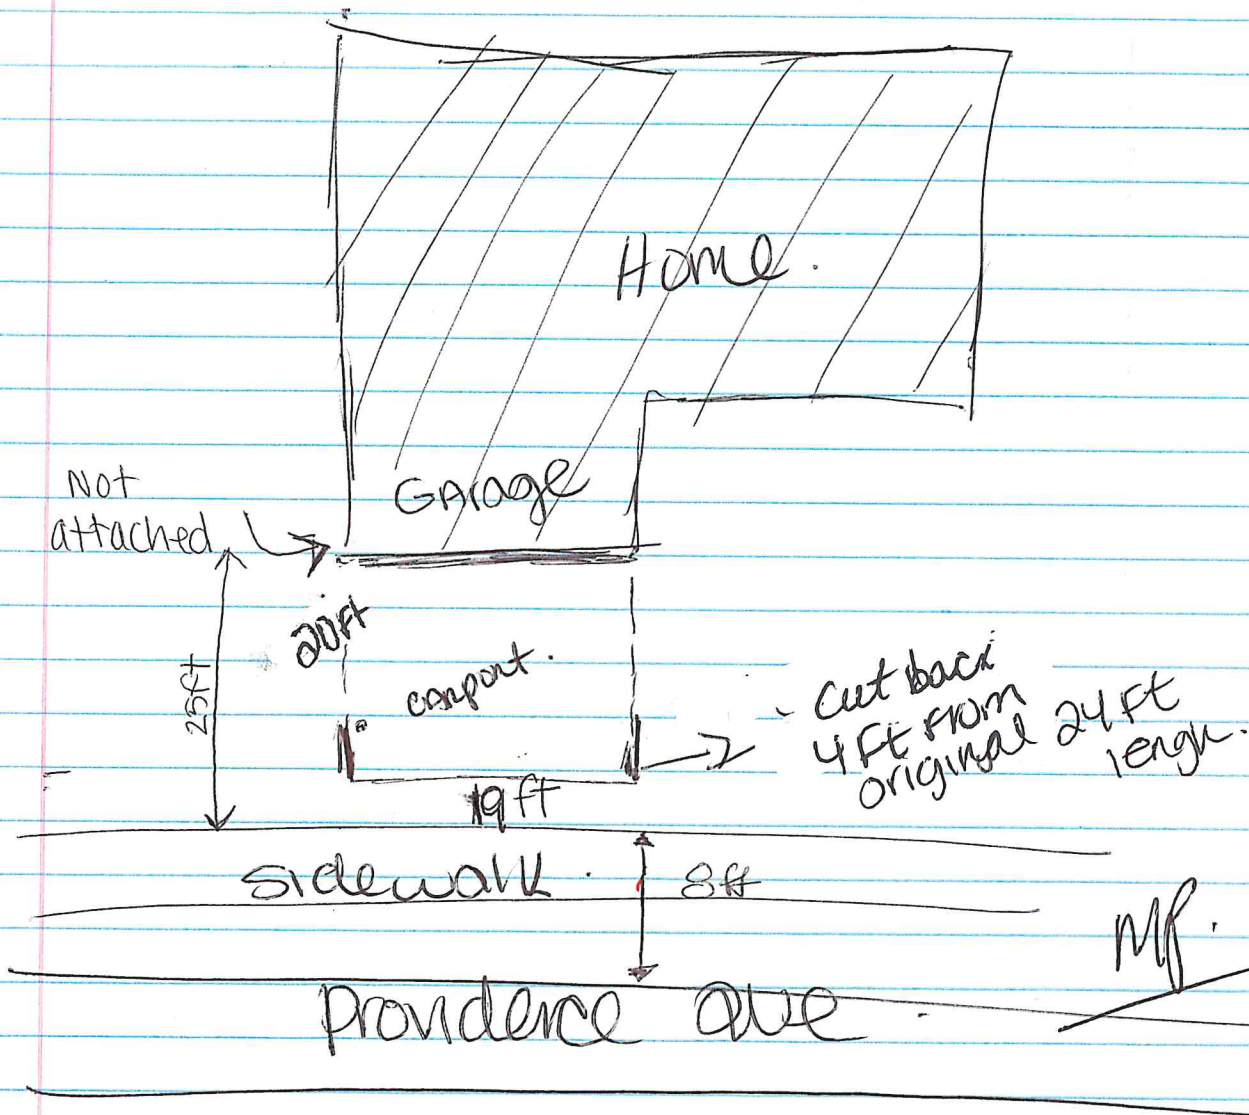 Home.
Garage
Not
attached
20ft
25ft
carport.
- Cut back
4ft from
original 24ft
lengh.
19ft
sidewalk.
8ft
MP.
Providence ave.